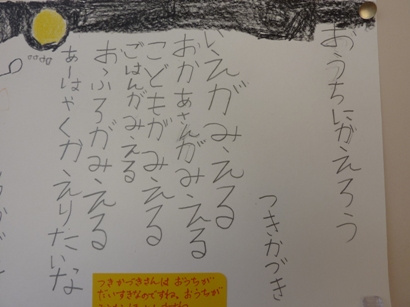 おうちにかえろう
つきかづき
いえがみえる
おかあさんがみえる
こどもがみえる
ごはんがみえる
おふろがみえる
あーはやくかえりたいな
つきかづきさんは おうちが
だいすきなのですね。おうちが